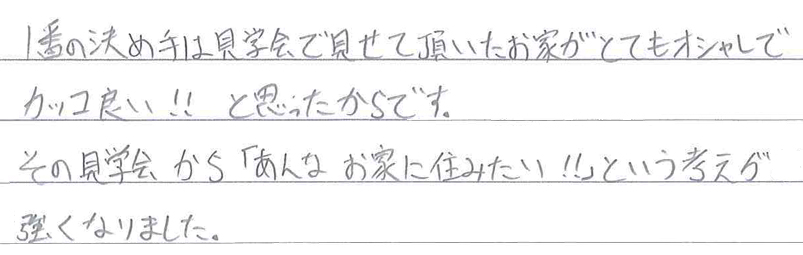 1番の決め手は見学会で見せて頂いたお家がとてもオシャレで
カッコ良い!! と思ったからです。
その見学会から「あんなお家に住みたい!!」という考えが
強くなりました。